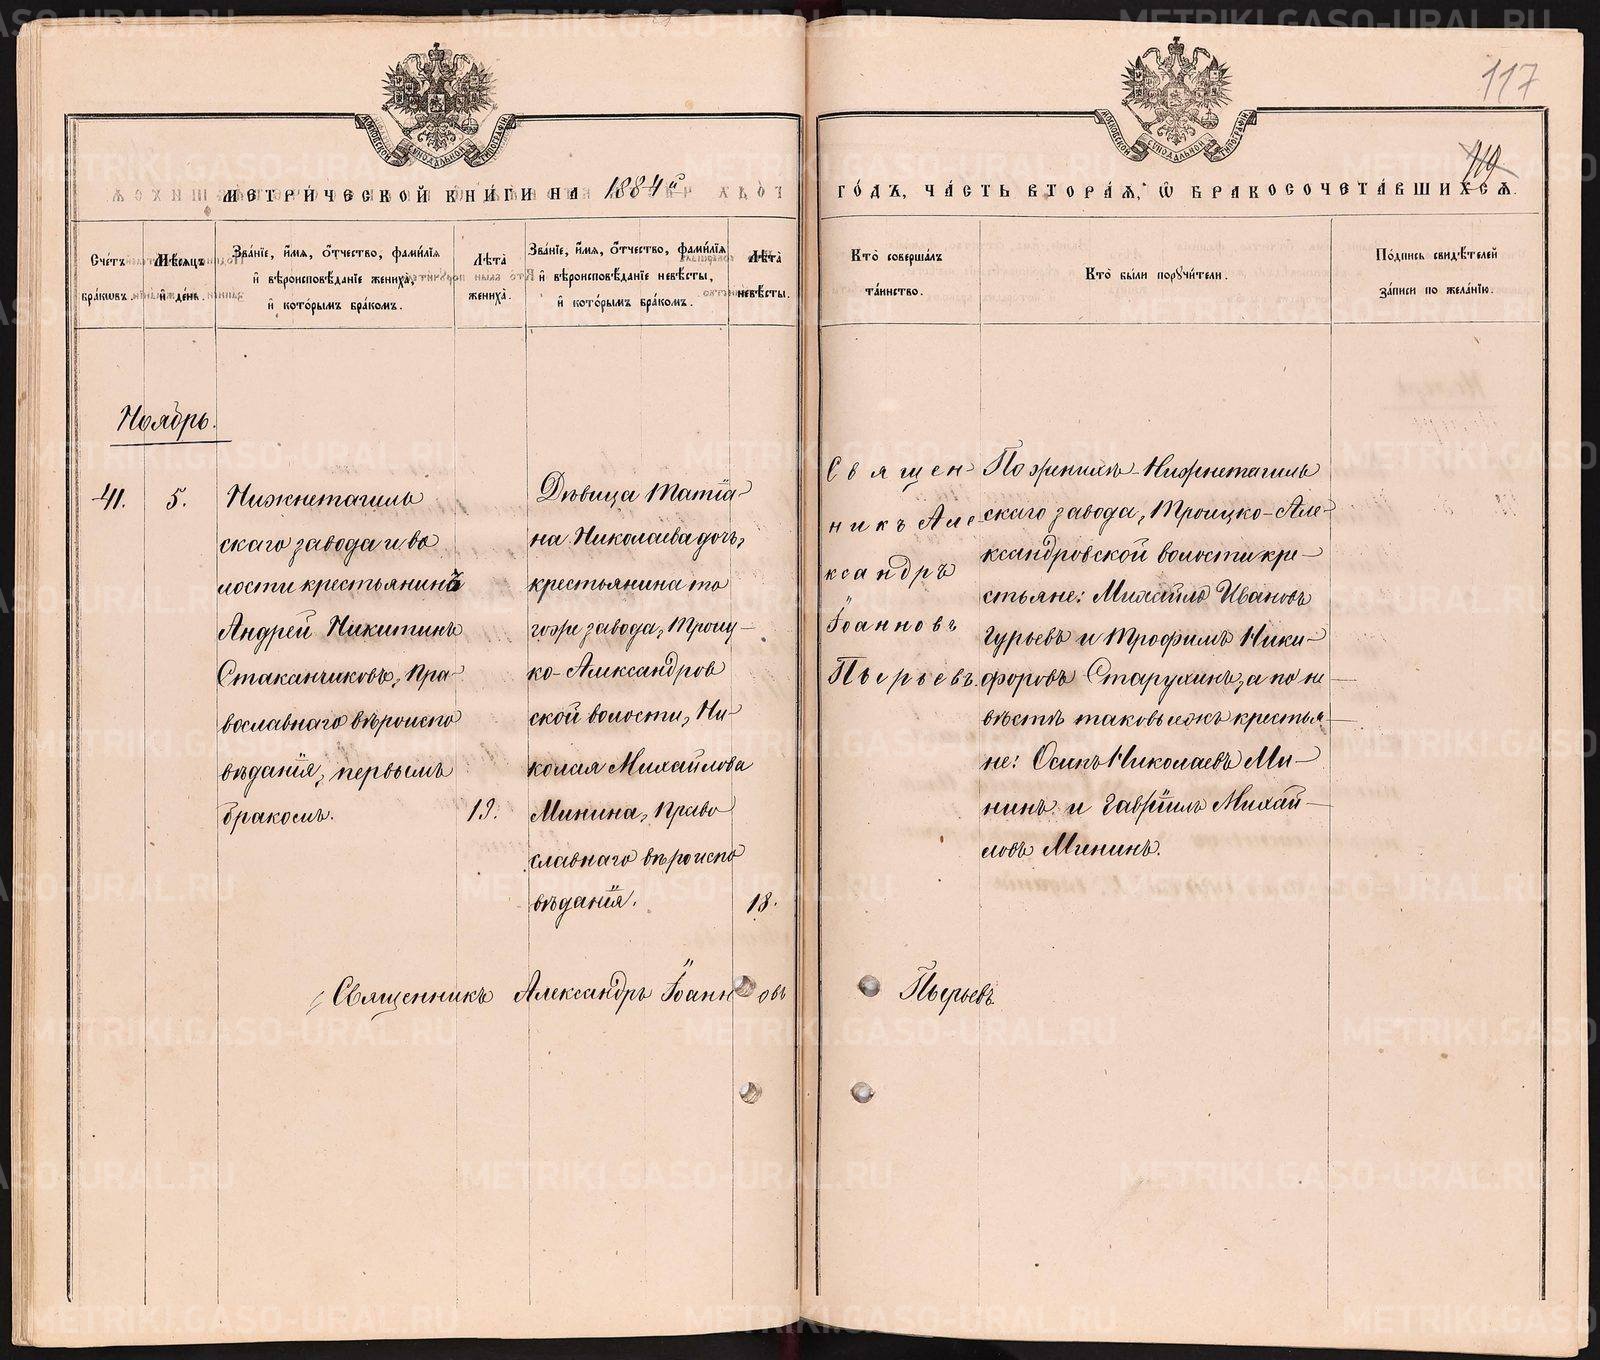 117
110
МЕТРИ́ЧЕСКОЙ КНИ́ГИ НА 1884й
ГО́ДЪ, ЧА́СТЬ ВТОРА́Я, Ѡ БРАКОСОЧЕТА́ВШИХСЯ.
МОСКОВСКОЙ СѴНОДАЛЬНОЙ ТИПОГРАФІИ
МОСКОВСКОЙ СѴНОДАЛЬНОЙ ТИПОГРАФІИ
Сче́тъ бра́кѡвъ.
Мѣ́сяцъ и҆ де́нь.
Зва́нїе, и҆́мя, ѻ҆́тчество, фами́лїя
и҆ вѣроисповѣ́данїе жениха̀,
и҆ кото́рымъ бра́комъ.
Лѣ́та
жениха̀.
Зва́нїе, и҆́мя, ѻ҆́тчество, фами́лїя
и҆ вѣроисповѣ́данїе невѣ́сты,
и҆ кото́рымъ бра́комъ.
Лѣ́та
невѣ́сты.
Кто̀ соверша́лъ
та́инство.
Кто̀ бы́ли порꙋчи́тели.
По́дпись свидѣ́телей
за́писи по жела́нїю.
Ноябрь.
41.
5.
Нижнетагиль
скаго завода и во
лости крестьянинъ
Андрей Никитинъ
Стаканчиковъ, Пра-
вославнаго вѣроиспо
вѣданія, первымъ
бракомъ.
19.
Дѣвица Татіа-
на Николаева дочь,
крестьянина то
гоже завода, Трои-
ко-Александров
ской волости, Ни-
колая Михайлова
Минина, Право
славнаго вѣроиспо
вѣданія.
18.
Священ-
никъ Але
ксандръ
Іоанновъ
Пьерьевъ.
По женихѣ - Нижнетагиль
скаго завода, Троицко-Але-
ксандровской волости кре-
стьяне: Михайло Ивановъ
Гурьевъ и Трофимъ Ники-
форовъ Старухинъ, а по не-
вѣстѣ таковыежъ крестья-
не: Осипъ Николаевъ Ми-
нинъ и Гавріилъ Михай-
ловъ Мининъ.
Священникъ Александръ Іоанновъ Пьерьевъ
METRIKI.GASO-URAL.RU